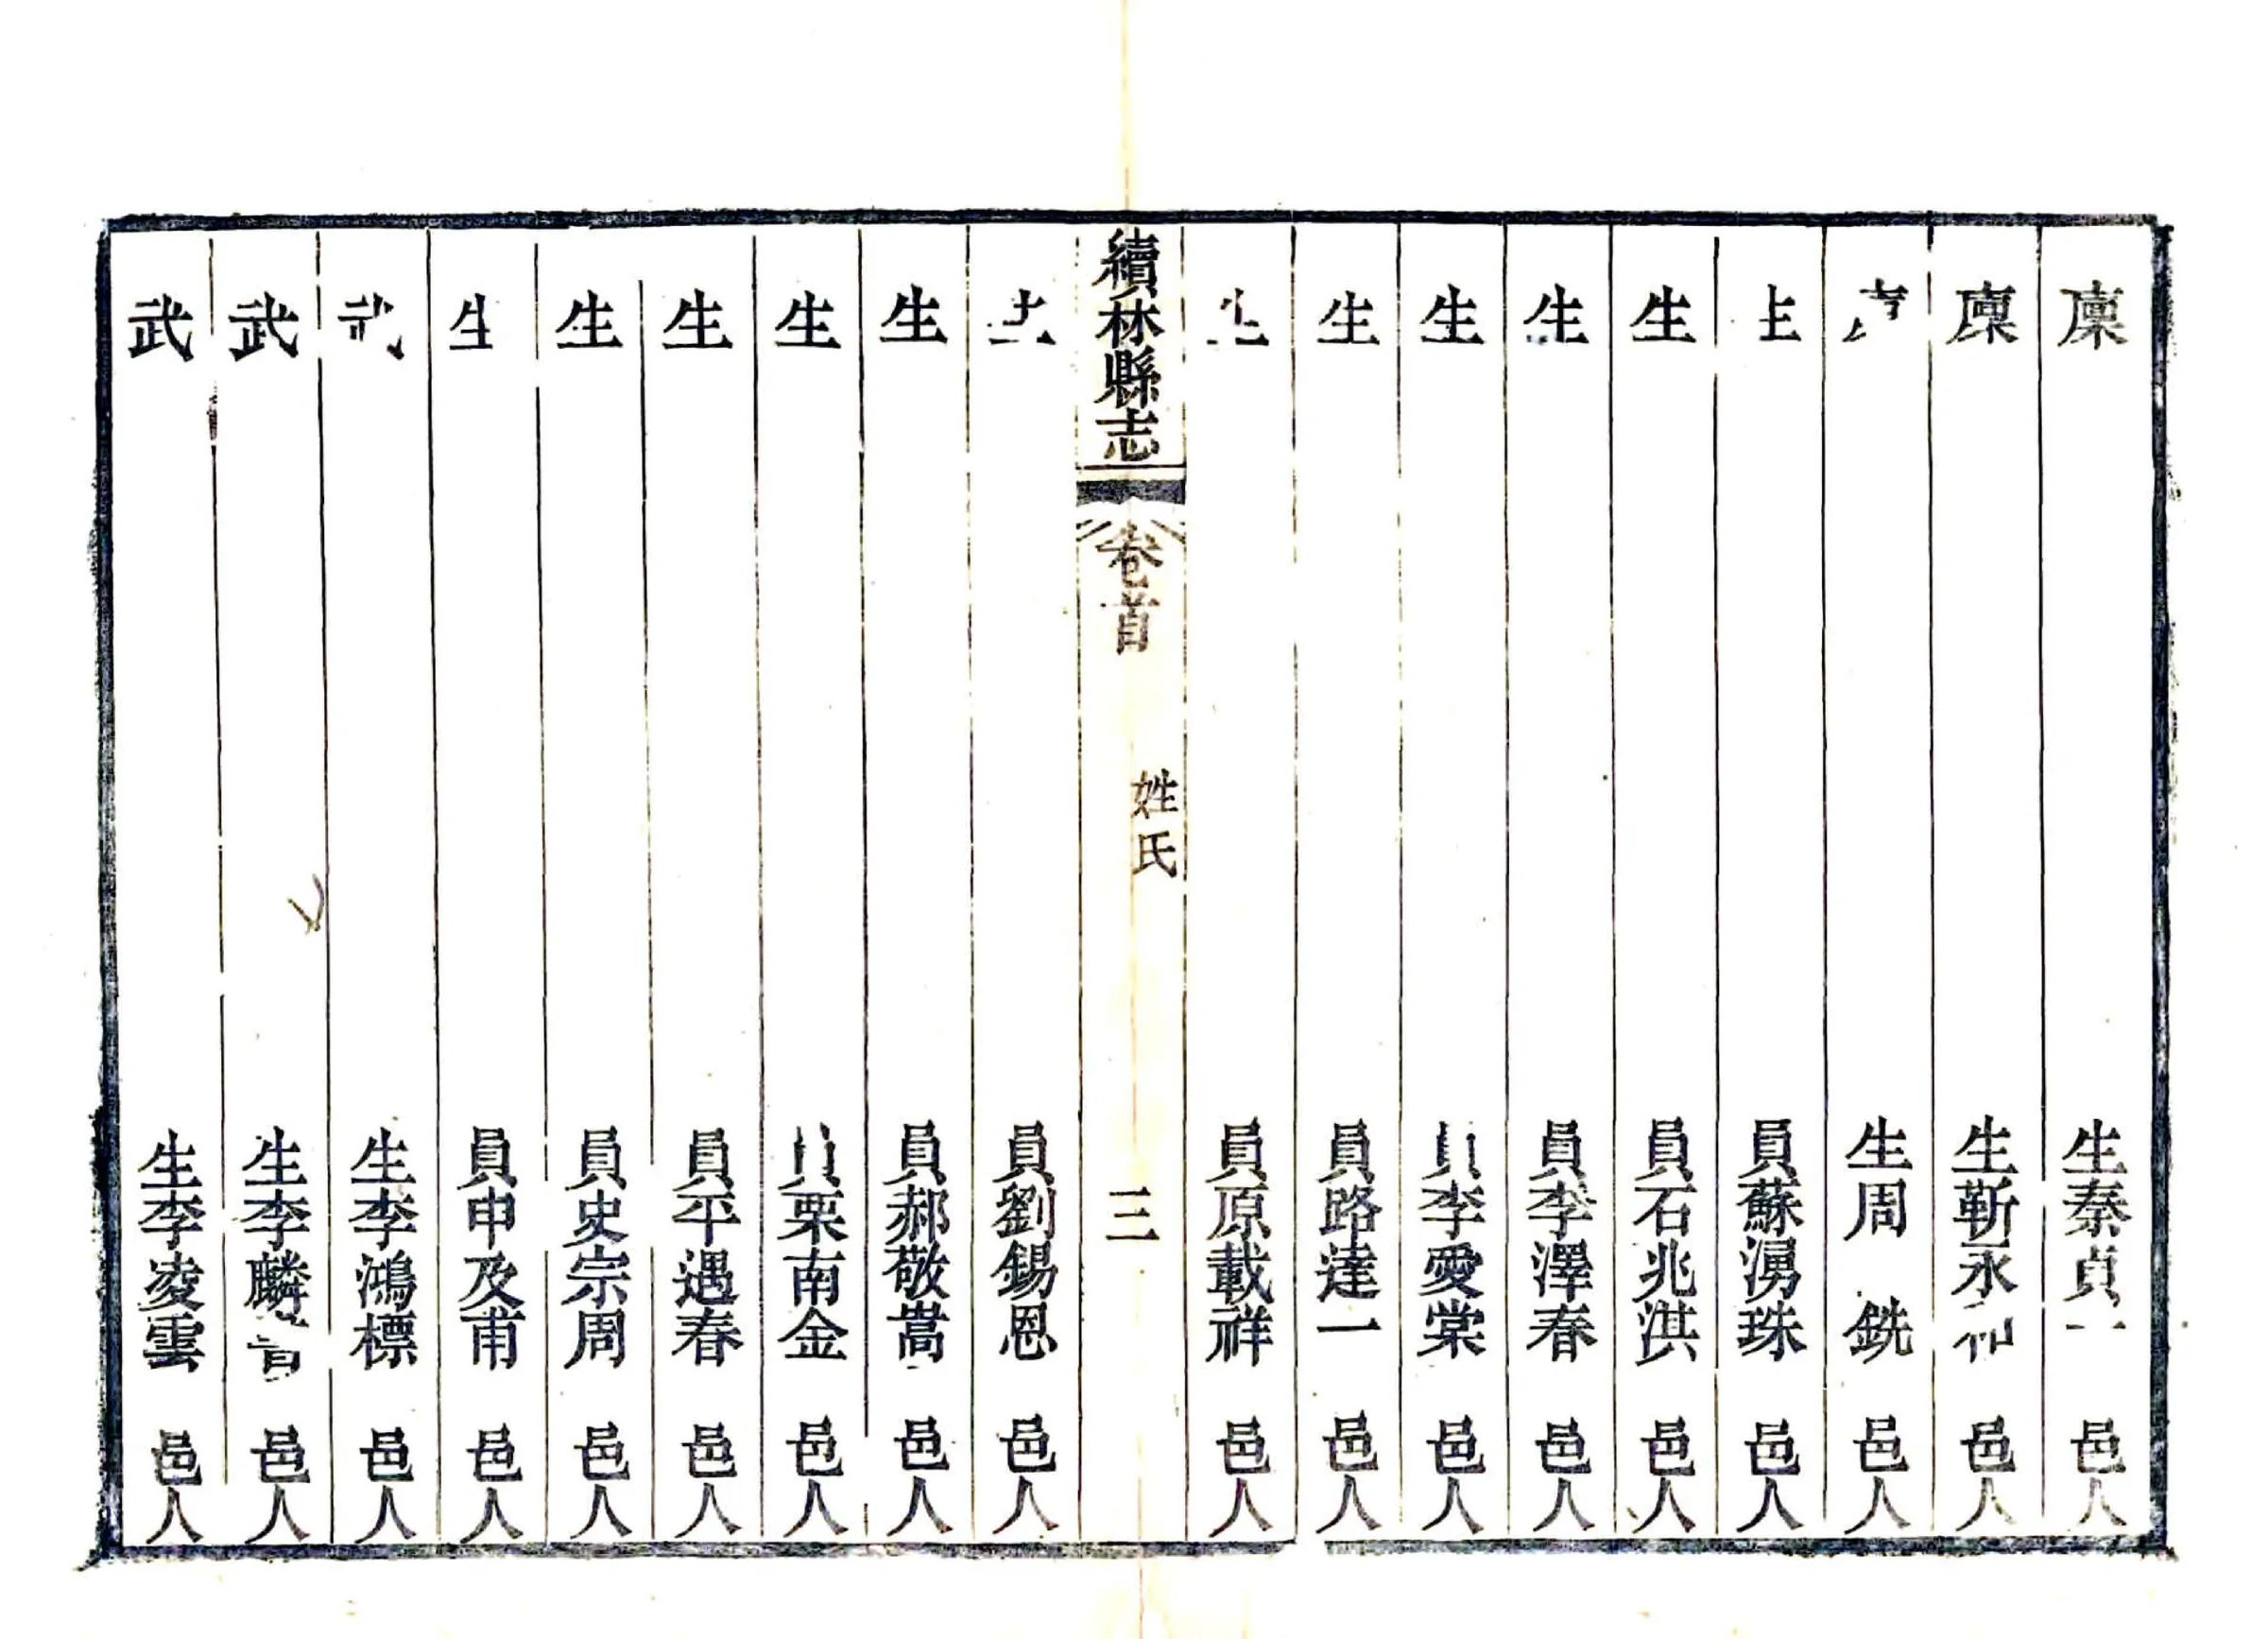 廩生秦貞一邑人
廩生靳永和邑人
生周銑邑人
生員蘇湧珠邑人
生員石兆淇邑人
生員李澤春邑人
生員李愛棠邑人
生員路達一邑人
生員原載祥邑人
續林縣志 卷首 姓氏 三
生員劉錫恩邑人
生員郝敬嵩邑人
生員栗南金邑人
生員平遇春邑人
生員史宗周邑人
生員申及甫邑人
武生李鴻標邑人
武生李麟邑人
武生李凌雲邑人